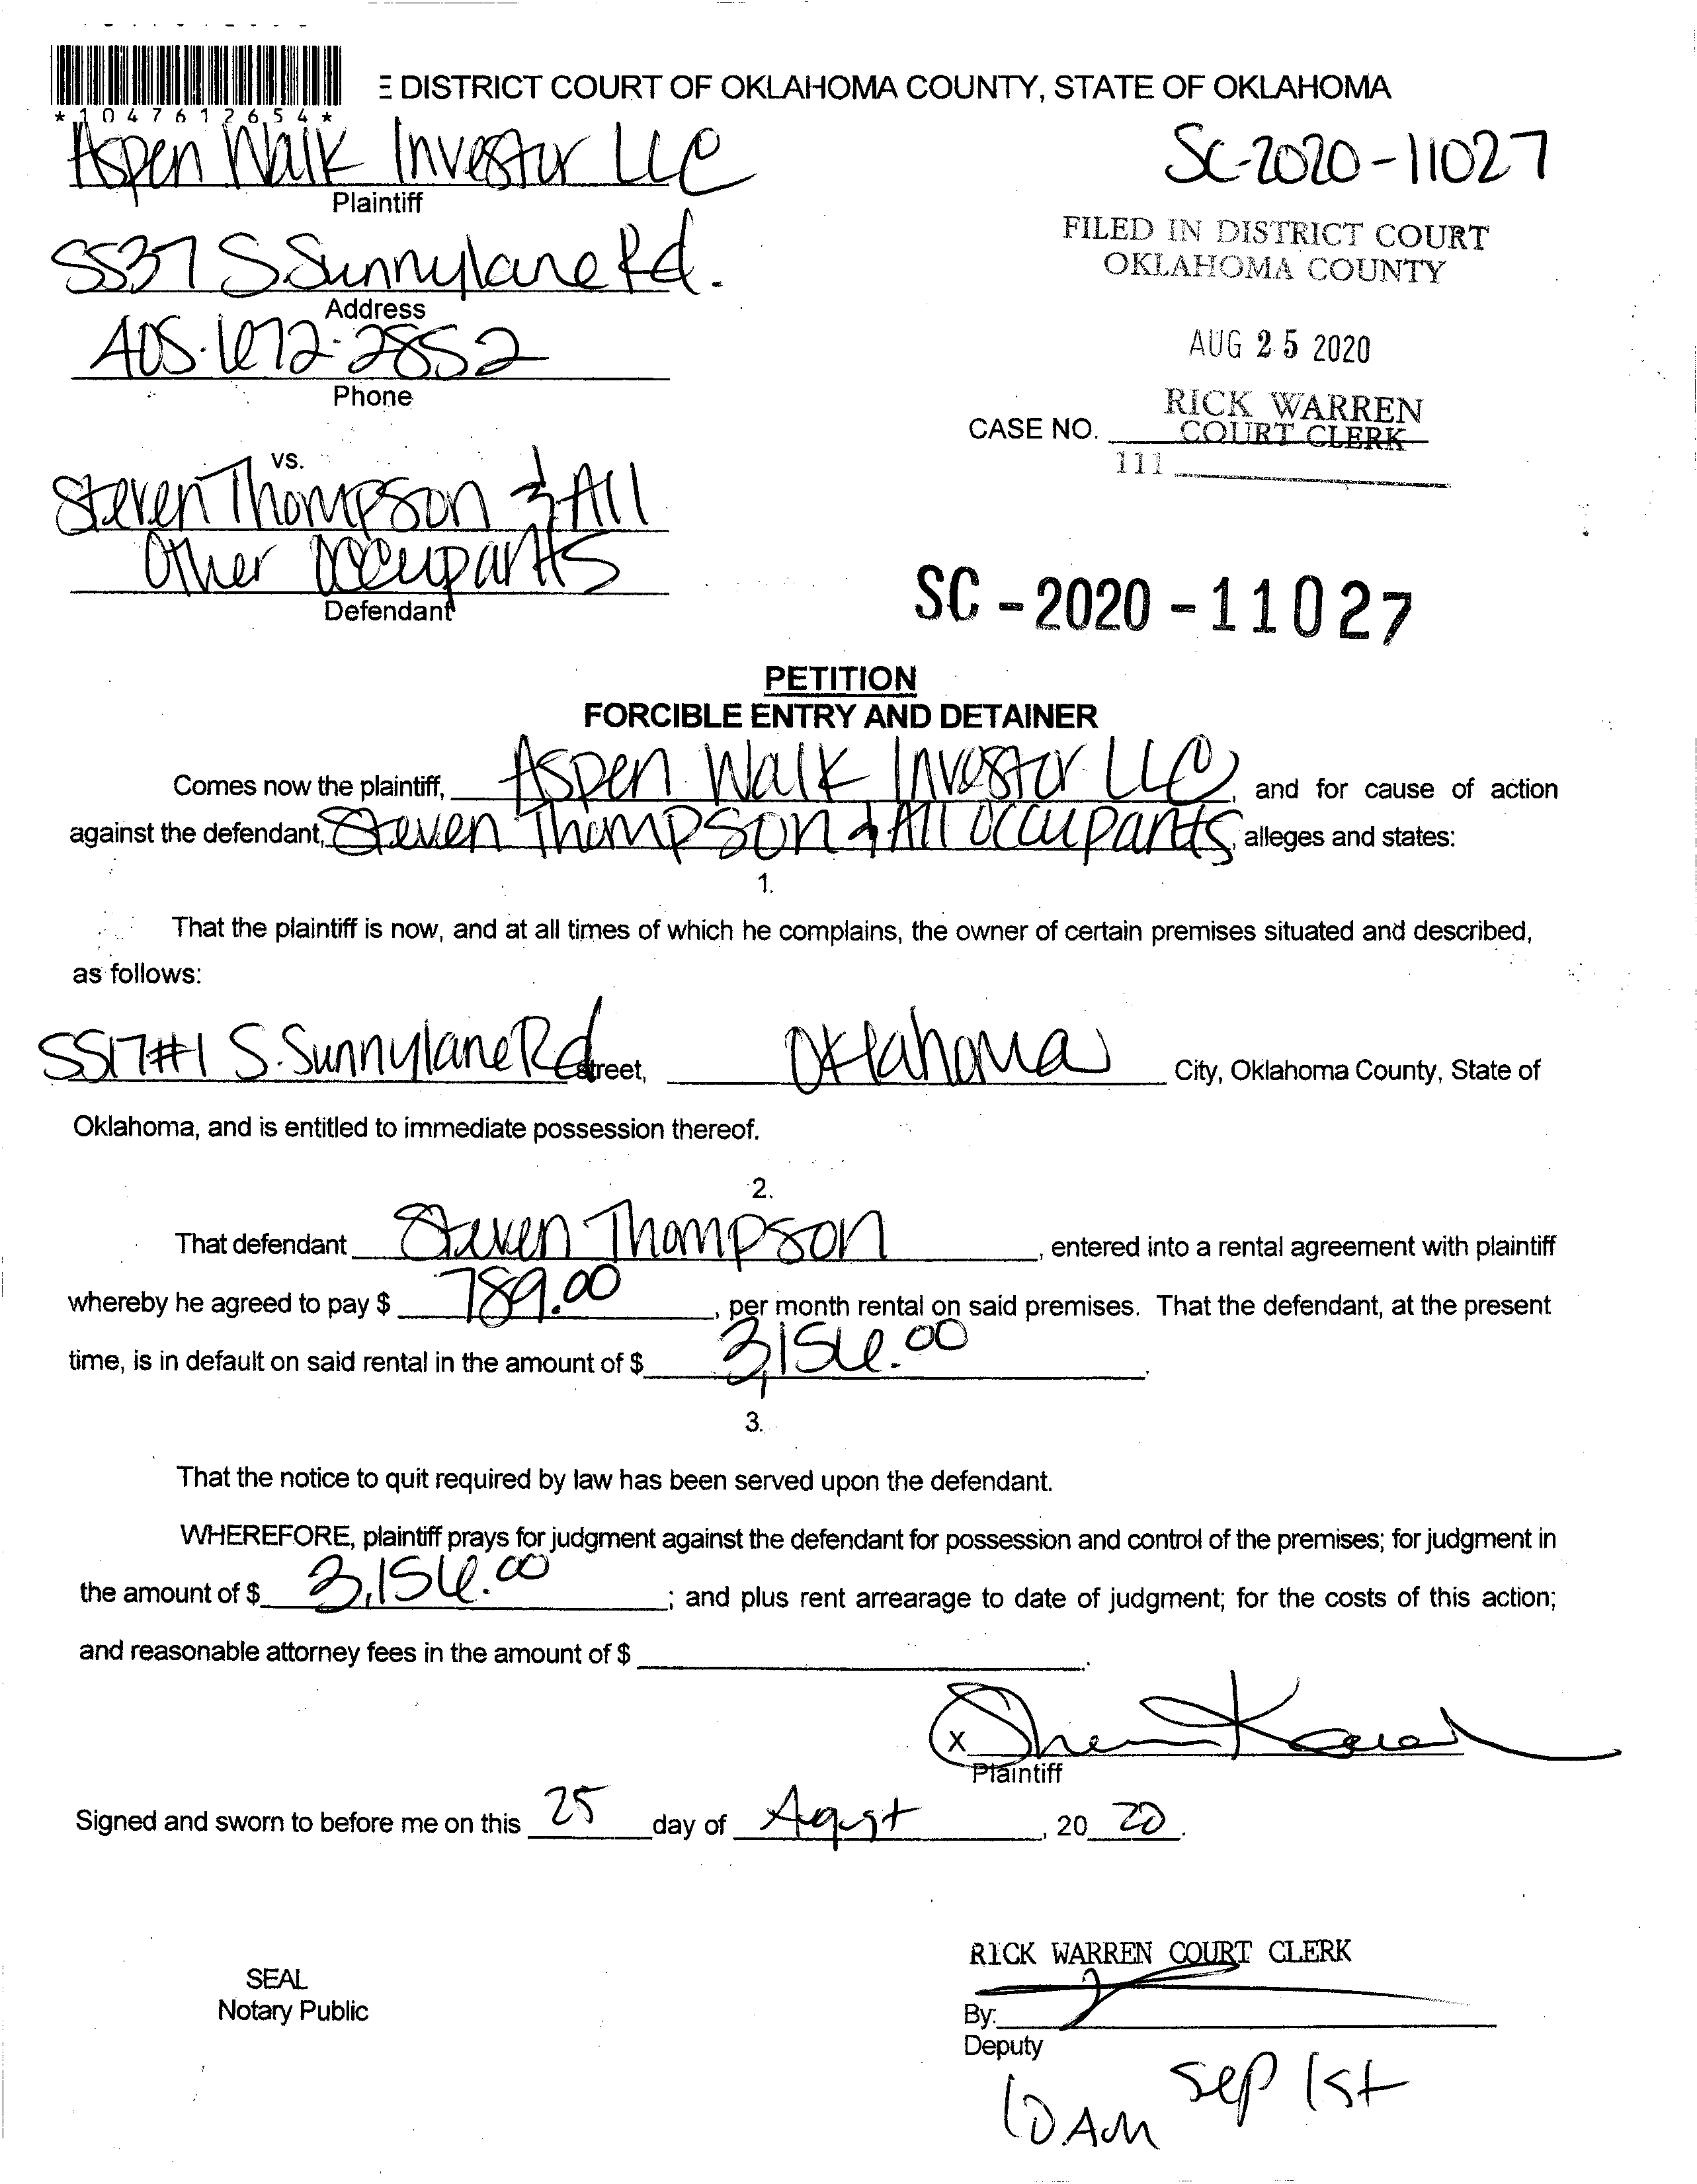 *1047612654*
E DISTRICT COURT OF OKLAHOMA COUNTY, STATE OF OKLAHOMA
Aspen Walk Investor LLC
Plaintiff
SC-2020-11027
5537 S Sunnylane Rd.
Address
FILED IN DISTRICT COURT
OKLAHOMA COUNTY
405.672-2852
Phone
AUG 25 2020
RICK WARREN
CASE NO. COURT CLERK
111
vs.
Steven Thompson & All
Other Occupants
Defendant
SC-2020-11027
PETITION
FORCIBLE ENTRY AND DETAINER
Comes now the plaintiff, Aspen Walk Investor LLC, and for cause of action
against the defendant, Steven Thompson & All Occupants, alleges and states:
1.
That the plaintiff is now, and at all times of which he complains, the owner of certain premises situated and described,
as follows:
5517#1 S. Sunnylane Rd street, Oklahoma City, Oklahoma County, State of
Oklahoma, and is entitled to immediate possession thereof.
2.
That defendant Steven Thompson, entered into a rental agreement with plaintiff
whereby he agreed to pay $ 789.00, per month rental on said premises. That the defendant, at the present
time, is in default on said rental in the amount of $ 3,156.00.
3.
That the notice to quit required by law has been served upon the defendant.
WHEREFORE, plaintiff prays for judgment against the defendant for possession and control of the premises; for judgment in
the amount of $ 3,156.00; and plus rent arrearage to date of judgment; for the costs of this action;
and reasonable attorney fees in the amount of $ .
X
Plaintiff
Signed and sworn to before me on this 25 day of Agust, 20 20.
RICK WARREN COURT CLERK
SEAL
Notary Public
By:
Deputy
10 AM Sep 1st